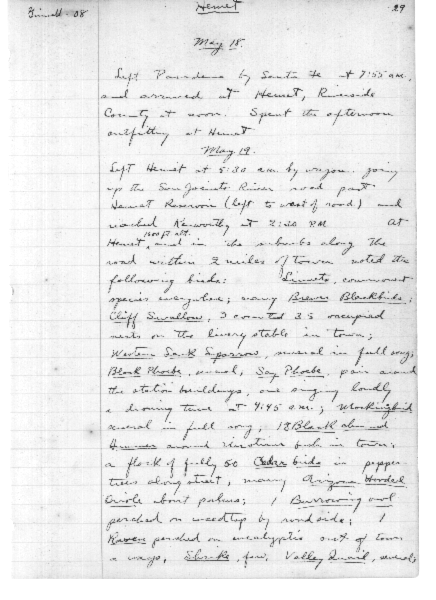 Grinnell - 08
Hemet
29
May 18.
Left Pasadena by Santa Fe at 7:55 a.m.,
and arrived at Hemet, Riverside
County at noon. Spent the afternoon
outfitting at Hemet
May 19.
Left Hemet at 5:30 a.m. by wagon, going
up the San Jacinto River road past
Hemet Reservoir (left to west of road) and
reached Kenworthy at 2:30 P.M. At
1600 ft. alt.
Hemet, and in the suburbs along the
road within 2 miles of town noted the
following birds: Linnets, commonest
species everywhere; many Brewer Blackbirds;
Cliff Swallow, I counted 35 occupied
nests on the livery stable in town;
Western Lark Sparrow, several in full song;
Black Phoebe, several, Say Phoebe, pair around
the station buildings, one singing loudly
a droning tune at 4:45 a.m.; Mockingbird
several in full song; 1 ♂ Black chinned
Hummer around nicotiana bush in town;
a flock of fully 50 Cedar birds in pepper
trees along street, many Arizona Hooded
Oriole about palms; 1 Burrowing owl
perched on weedtop by roadside; 1
Raven perched on eucalyptus out of town
a ways, Shrike, few, Valley Quail, several;